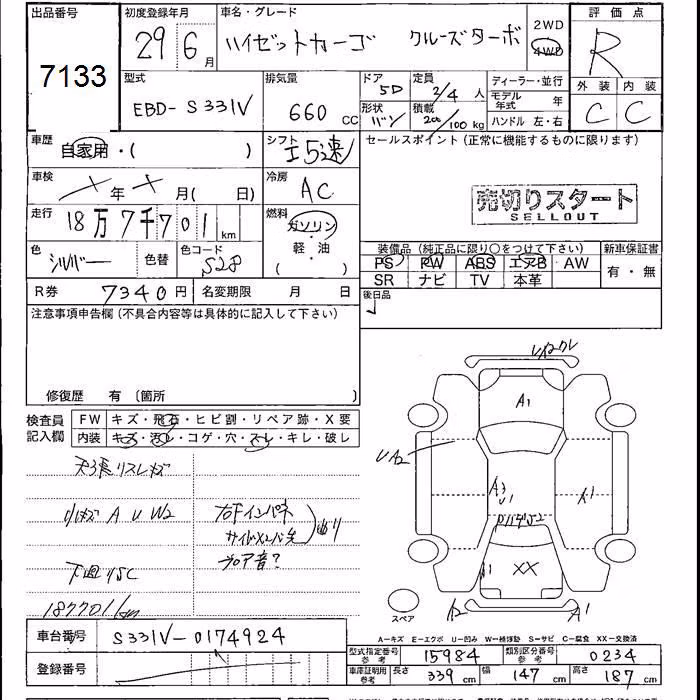 出品番号
7133
初度登録年月
29年 6月
車名・グレード
ハイゼットカーゴ クルーズターボ
2WD
4WD
評価点
R
外装 内装
C C
型式
EBD-S331V
排気量
660 cc
ドア
5D
形状
バン
定員
2/4 人
積載
200/100 kg
ディーラー・並行
モデル年式 年
ハンドル 左・右
車歴
自家用・( )
シフト
I5速
セールスポイント(正常に機能するものに限ります)
売切りスタート
SELLOUT
車検
年 月( 日)
冷房
AC
走行
18万7千701km
燃料
ガソリン
軽・油
( )
色
シルバー
色替
色コード
S28
装備品(純正品に限り○をつけて下さい)
PS PW ABS エアB AW
SR ナビ TV 本革
新車保証書
有・無
R券 7340円
名変期限 月 日
後日品
注意事項申告欄(不具合内容等は具体的に記入して下さい)
修復歴 有 〔箇所 〕
検査員記入欄
FW キズ・飛石・ヒビ割・リペア跡・X要
内装 キズ・汚レ・コゲ・穴・スレ・キレ・破レ
リキズ A U W2
右Fインパネ
フロア音?
下廻りSC
187701km
A1
UA2
A3
U1
A1
XX
A2
A1
スペア
A-キズ E-エクボ U-凹み W-補修跡 S-サビ C-腐食 XX-交換済
車台番号 S331V-0174924
登録番号
型式指定番号 参考 15984
類別区分番号 参考 0234
車庫証明用 参考 長さ 339cm 幅 147cm 高さ 187cm